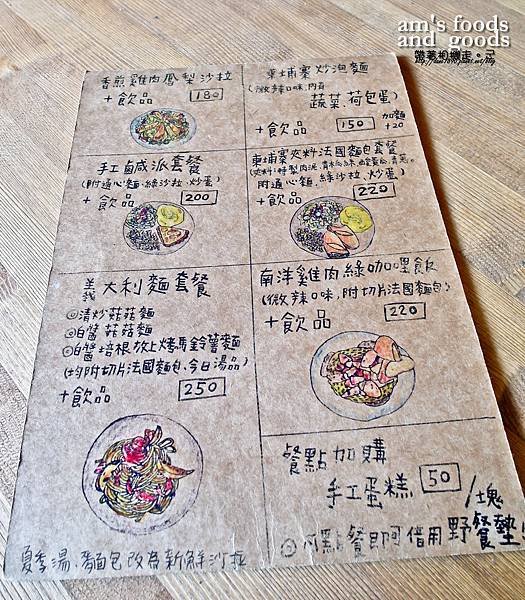 am's foods
and goods
帶著相機走。ㄛ
香煎雞肉鳳梨沙拉
+飲品 180
手工鹹派套餐
(附通心麵、綠沙拉、炒蛋)
+飲品 200
義大利麵套餐
◎清炒菇菇麵
◎白醬菇菇麵
◎白醬培根放上烤馬鈴薯麵
(均附切片法國麵包、今日湯品)
+飲品 250
夏季湯、麵包改為新鮮沙拉
柬埔寨炒泡麵
(微辣口味,內有
蔬菜、荷包蛋)
+飲品 150 加麵
+20
柬埔寨夾料法國麵包套餐
附通心麵、綠沙拉、炒蛋)
+飲品 220
南洋雞肉綠咖哩飯
(微辣口味,附切片法國麵包)
+飲品 220
餐點加購
手工蛋糕 50 /塊
◎凡點餐即可借用野餐墊!